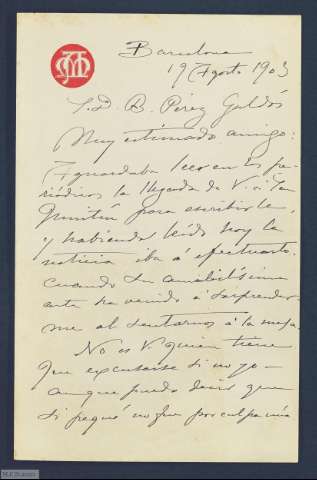 Barcelona
19 Agosto 1903
S. D. B. Pérez Galdós
Muy estimado amigo:
Aguardaba leer en los pe-
riódicos la llegada de V. a San
Quintín para escribirle,
y habiendo leído hoy la
noticia iba á efectuarlo,
cuando su amabilísima
carta ha venido á sorprender-
me al sentarnos á la mesa.
No es V. quien tiene
que excusarse si no yo —
aunque puedo decir que
si pequé no fue por culpa mía